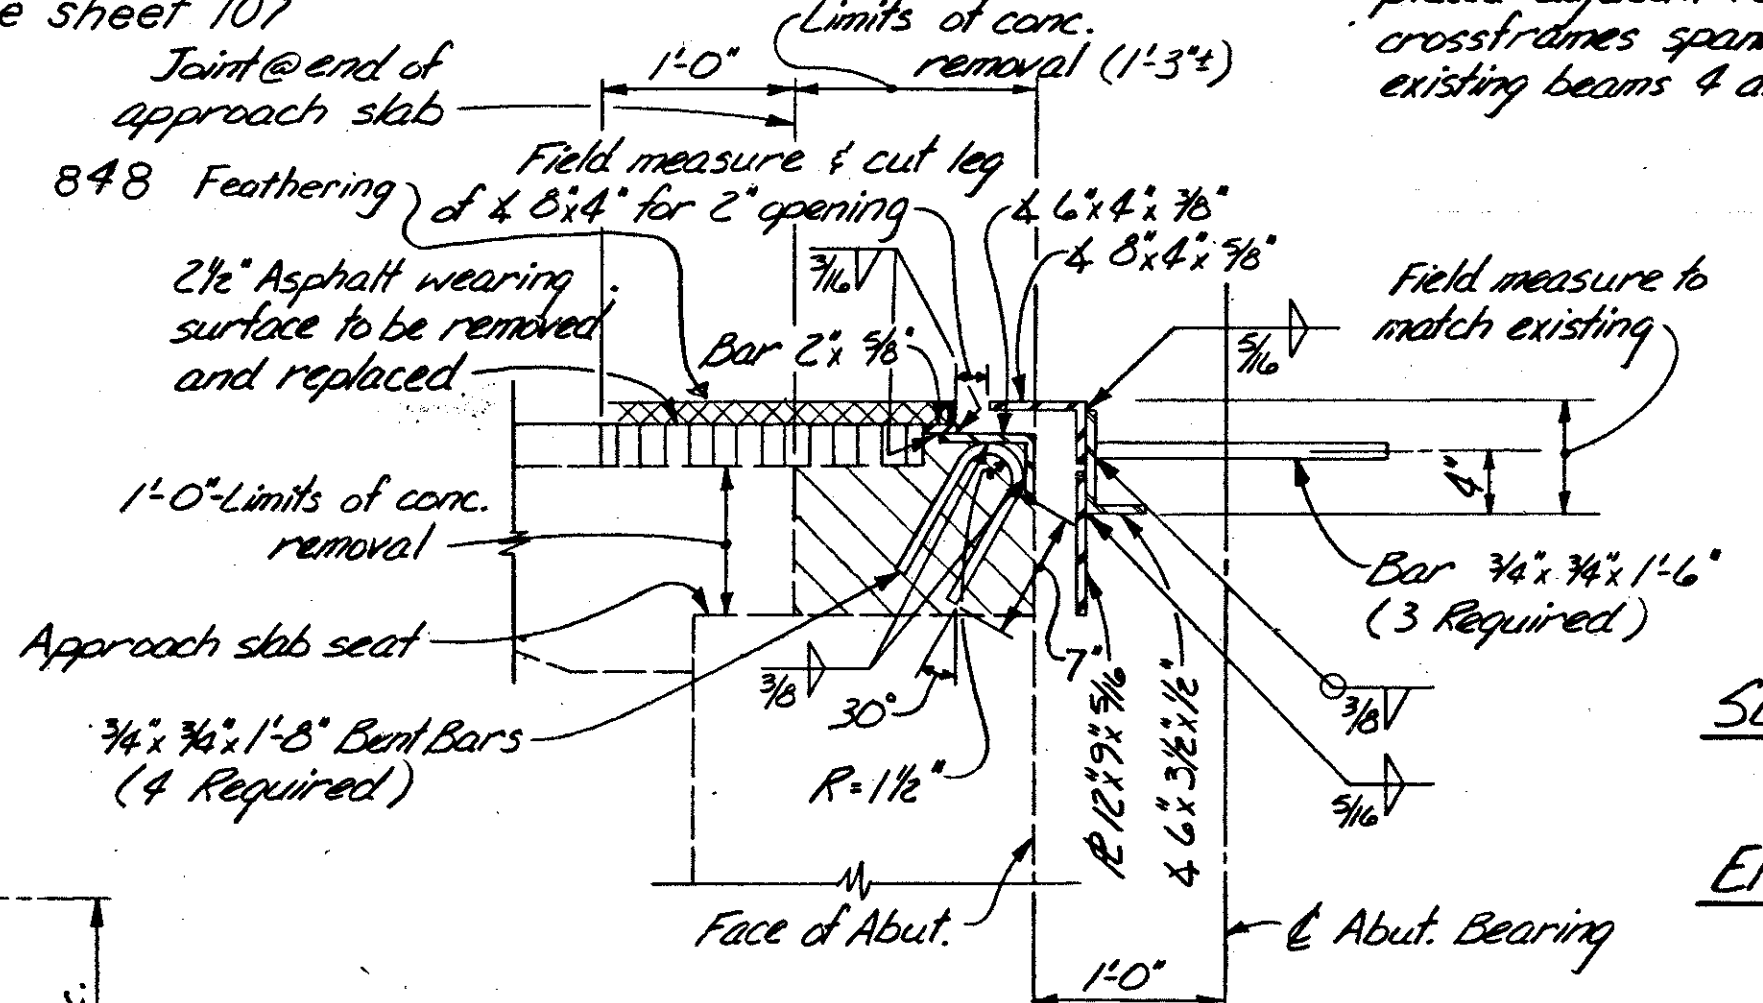 e sheet 107
Joint @ end of
approach slab
1'-0"
Limits of conc.
removal (1'-3"±)
crossframes span
existing beams 4 a
848 Feathering
Field measure & cut leg
of ∡ 8"x4" for 2" opening
∡ 6"x4"x 3/8"
∡ 8"x4"x 5/8"
2½" Asphalt wearing
surface to be removed
and replaced
3/16
Bar 2"x 5/8"
5/16
Field measure to
match existing
4"
1'-0"-Limits of conc.
removal
Bar 3/4"x 3/4"x 1'-6"
(3 Required)
Approach slab seat
3/8
30°
7"
3/4"x 3/4"x 1'-8" Bent Bars
(4 Required)
R=1½"
℄ 12"x9"x 5/16
∡ 6"x 3½"x ½"
3/8
5/16
Face of Abut.
℄ Abut. Bearing
1'-0"